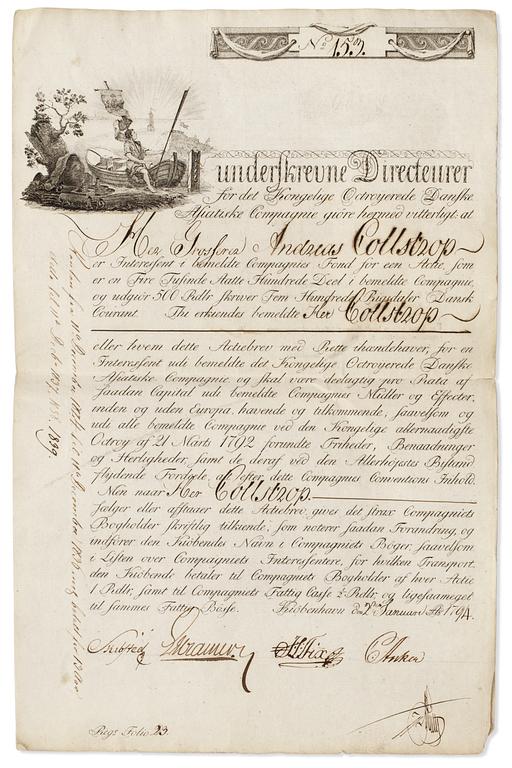 No 153.
underskrevne Directeurer
for det Kongelige Octroyerede Danske
Asiatiske Compagnie giöre hermed vitterligt: at
Her Grosserer Andreas Collstrop
er Interessent i bemeldte Compagnies Fond for een Actie, som
er en Fire Tusinde Aatte Hundrede Deel i bemeldte Compagnie,
og udgiör 500 Rdlr skriver Fem Hundrede Rigsdaler Dansk
Courant. Thi erkiendes bemeldte Her Collstrop
eller hvem dette Actiebrev med Rette ihændehaver, for en
Interessent udi bemeldte det Kongelige Octroyerede Danske
Asiatiske Compagnie, og skal være deelagtig pro Rata af
saadan Capital udi bemeldte Compagnies Midler og Effecter,
inden og uden Europa, havende og tilkommende, saavelsom og
udi alle bemeldte Compagnie ved den Kongelige allernaadigste
Octroy af 21 Marts 1792 forundte Friheder, Benaadninger
og Herligheder, samt de deraf ved den Allerhöjstes Bistand
flydende Fordeele, alt efter dette Compagnies Conventions Inhold.
Men naar Her Collstrop.
sælger eller afstaaer dette Actiebrev, gives det strax Compagniets
Bogholder skriftlig tilkiende, som noterer saadan Forandring, og
indförer den Kiöbendes Navn i Compagniets Böger, saavelsom
i Listen over Compagniets Interessentere, for hvilken Transport
den Kiöbende betaler til Compagniets Bogholder af hver Actie
1 Rdlr, samt til Compagniets Fattig Casse ½ Rdlr, og ligesaameget
til sammes Fattig Bösse. Kiöbenhavn den 2den Januarii Ao 1794.
Fix
C Anker
Regs Folio 23.
1837. 1838. 1839